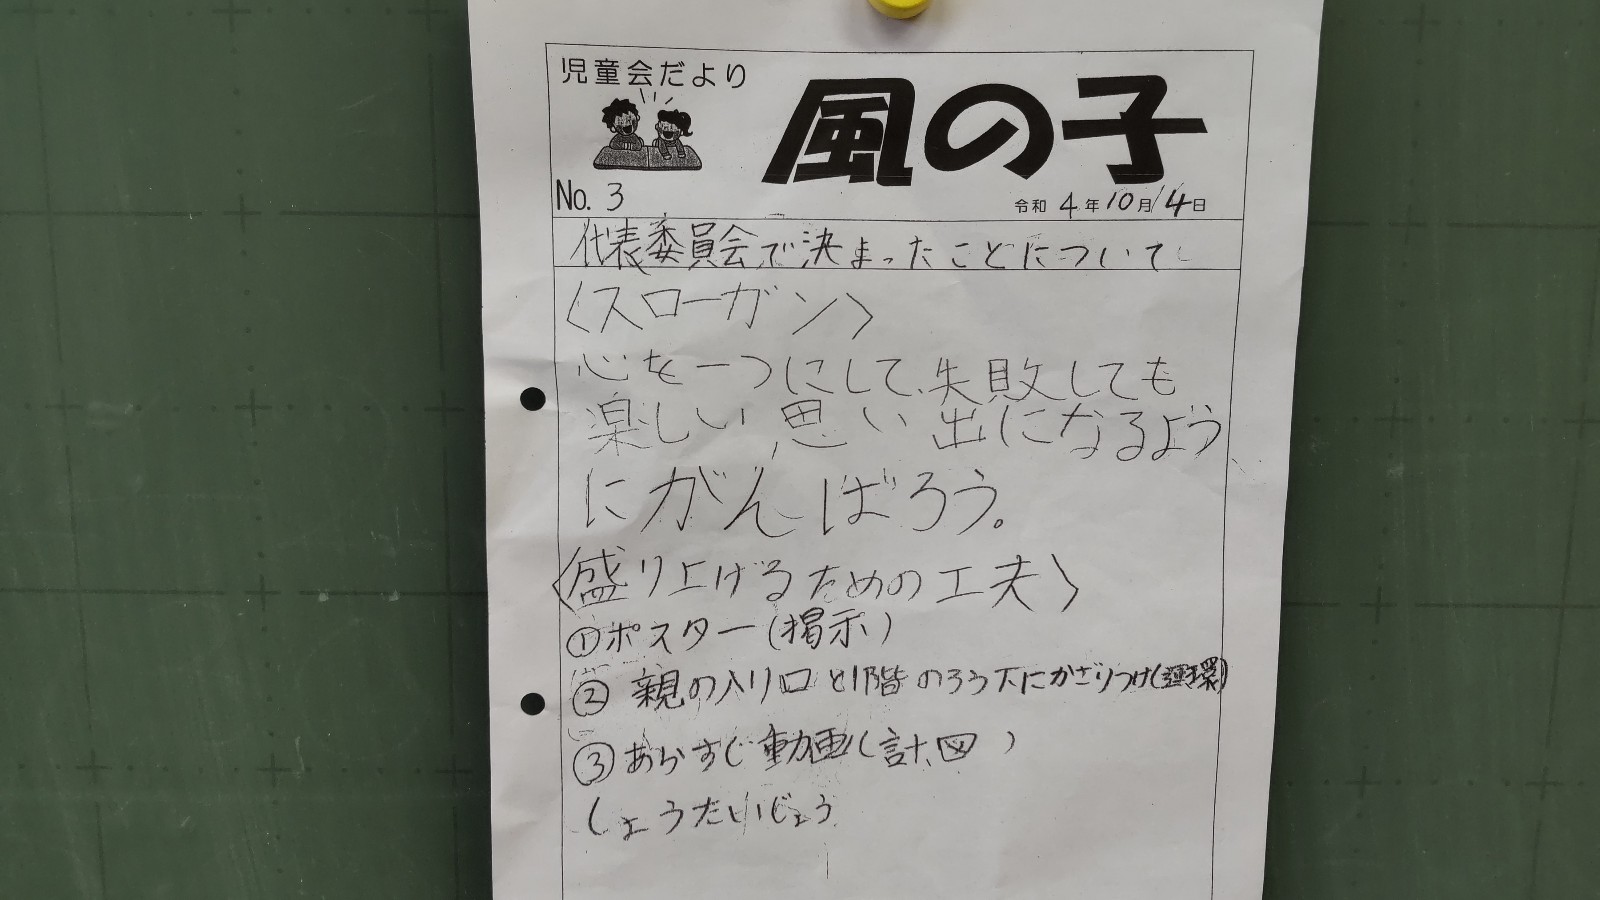 児童会だより
風の子
No. 3
令和 4年10月14日
代表委員会で決まったことについて
〈スローガン〉
心を一つにして、失敗しても
楽しい思い出になるよう
にがんばろう。
〈盛り上げるための工夫〉
①ポスター(掲示)
② 親の入り口と1階のろう下にかざりつけ(運環)
③あらすじ動画(計、図 )
しょうたいじょう